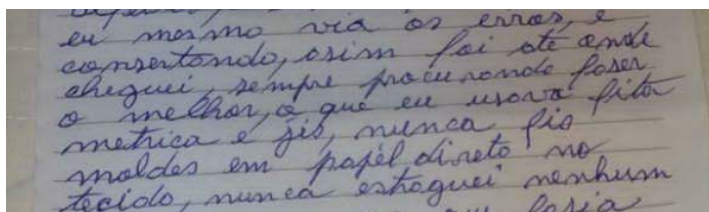 eu mesmo via os erros, e
consertando, asim foi até onde
cheguei, sempre procurando faser
o melhor, o que eu usava fita
metrica e gis, nunca fis
moldes em papél direto no
tecido, nunca estraguei nenhum